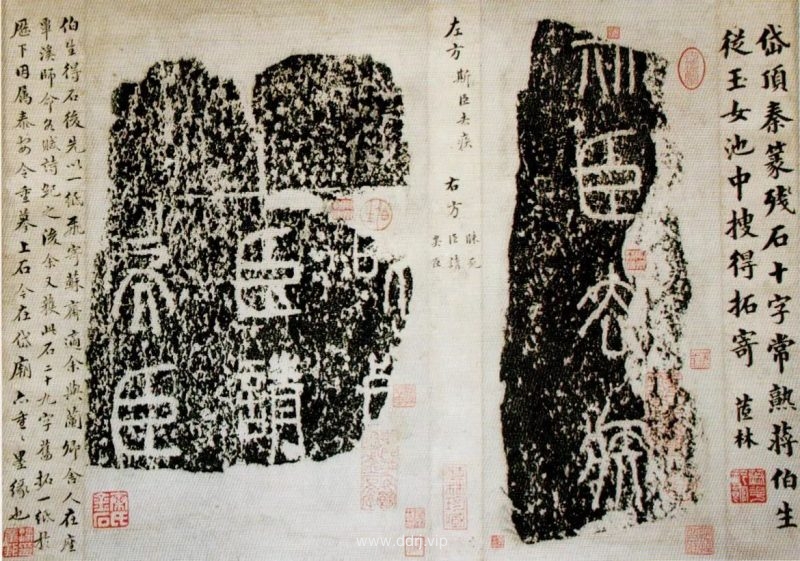 岱頂秦篆殘石十字常熟蔣伯生
從玉女池中搜得拓寄 茝林
斯臣去疾
左方 斯臣去疾 右方 昧死
臣請
矣臣
昧死
臣請
矣臣
伯生得石後先以一紙飛寄蘇齋適余與蘭卿舍人在座
覃溪師令各賦詩紀之後余又獲此石二十九字舊拓一紙於
歷下因属泰安令重摹上石今在岱廟亦重〻墨緣也